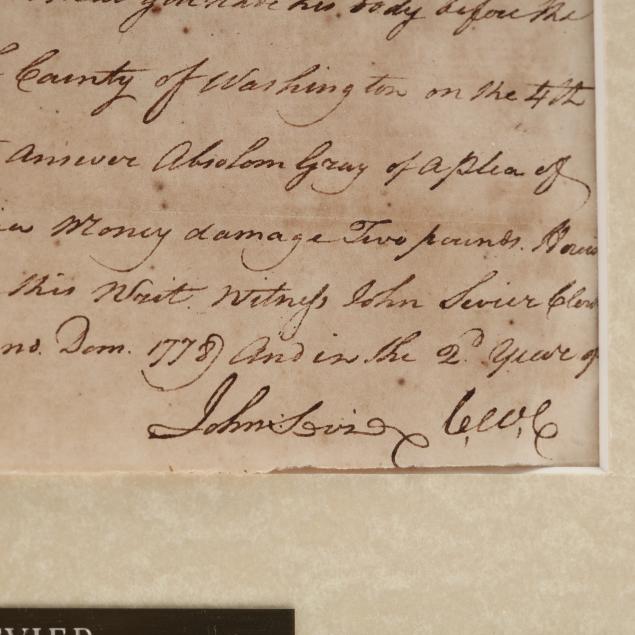 you have his body before the
County of Washington on the 4th
Answer Absolom Gray of a plea of
Money damage Two pounds.
this Writ. Witness John Sevier
no. Dom. 1778) And in the 2d Year of
John Sevier C.W.C
VIER